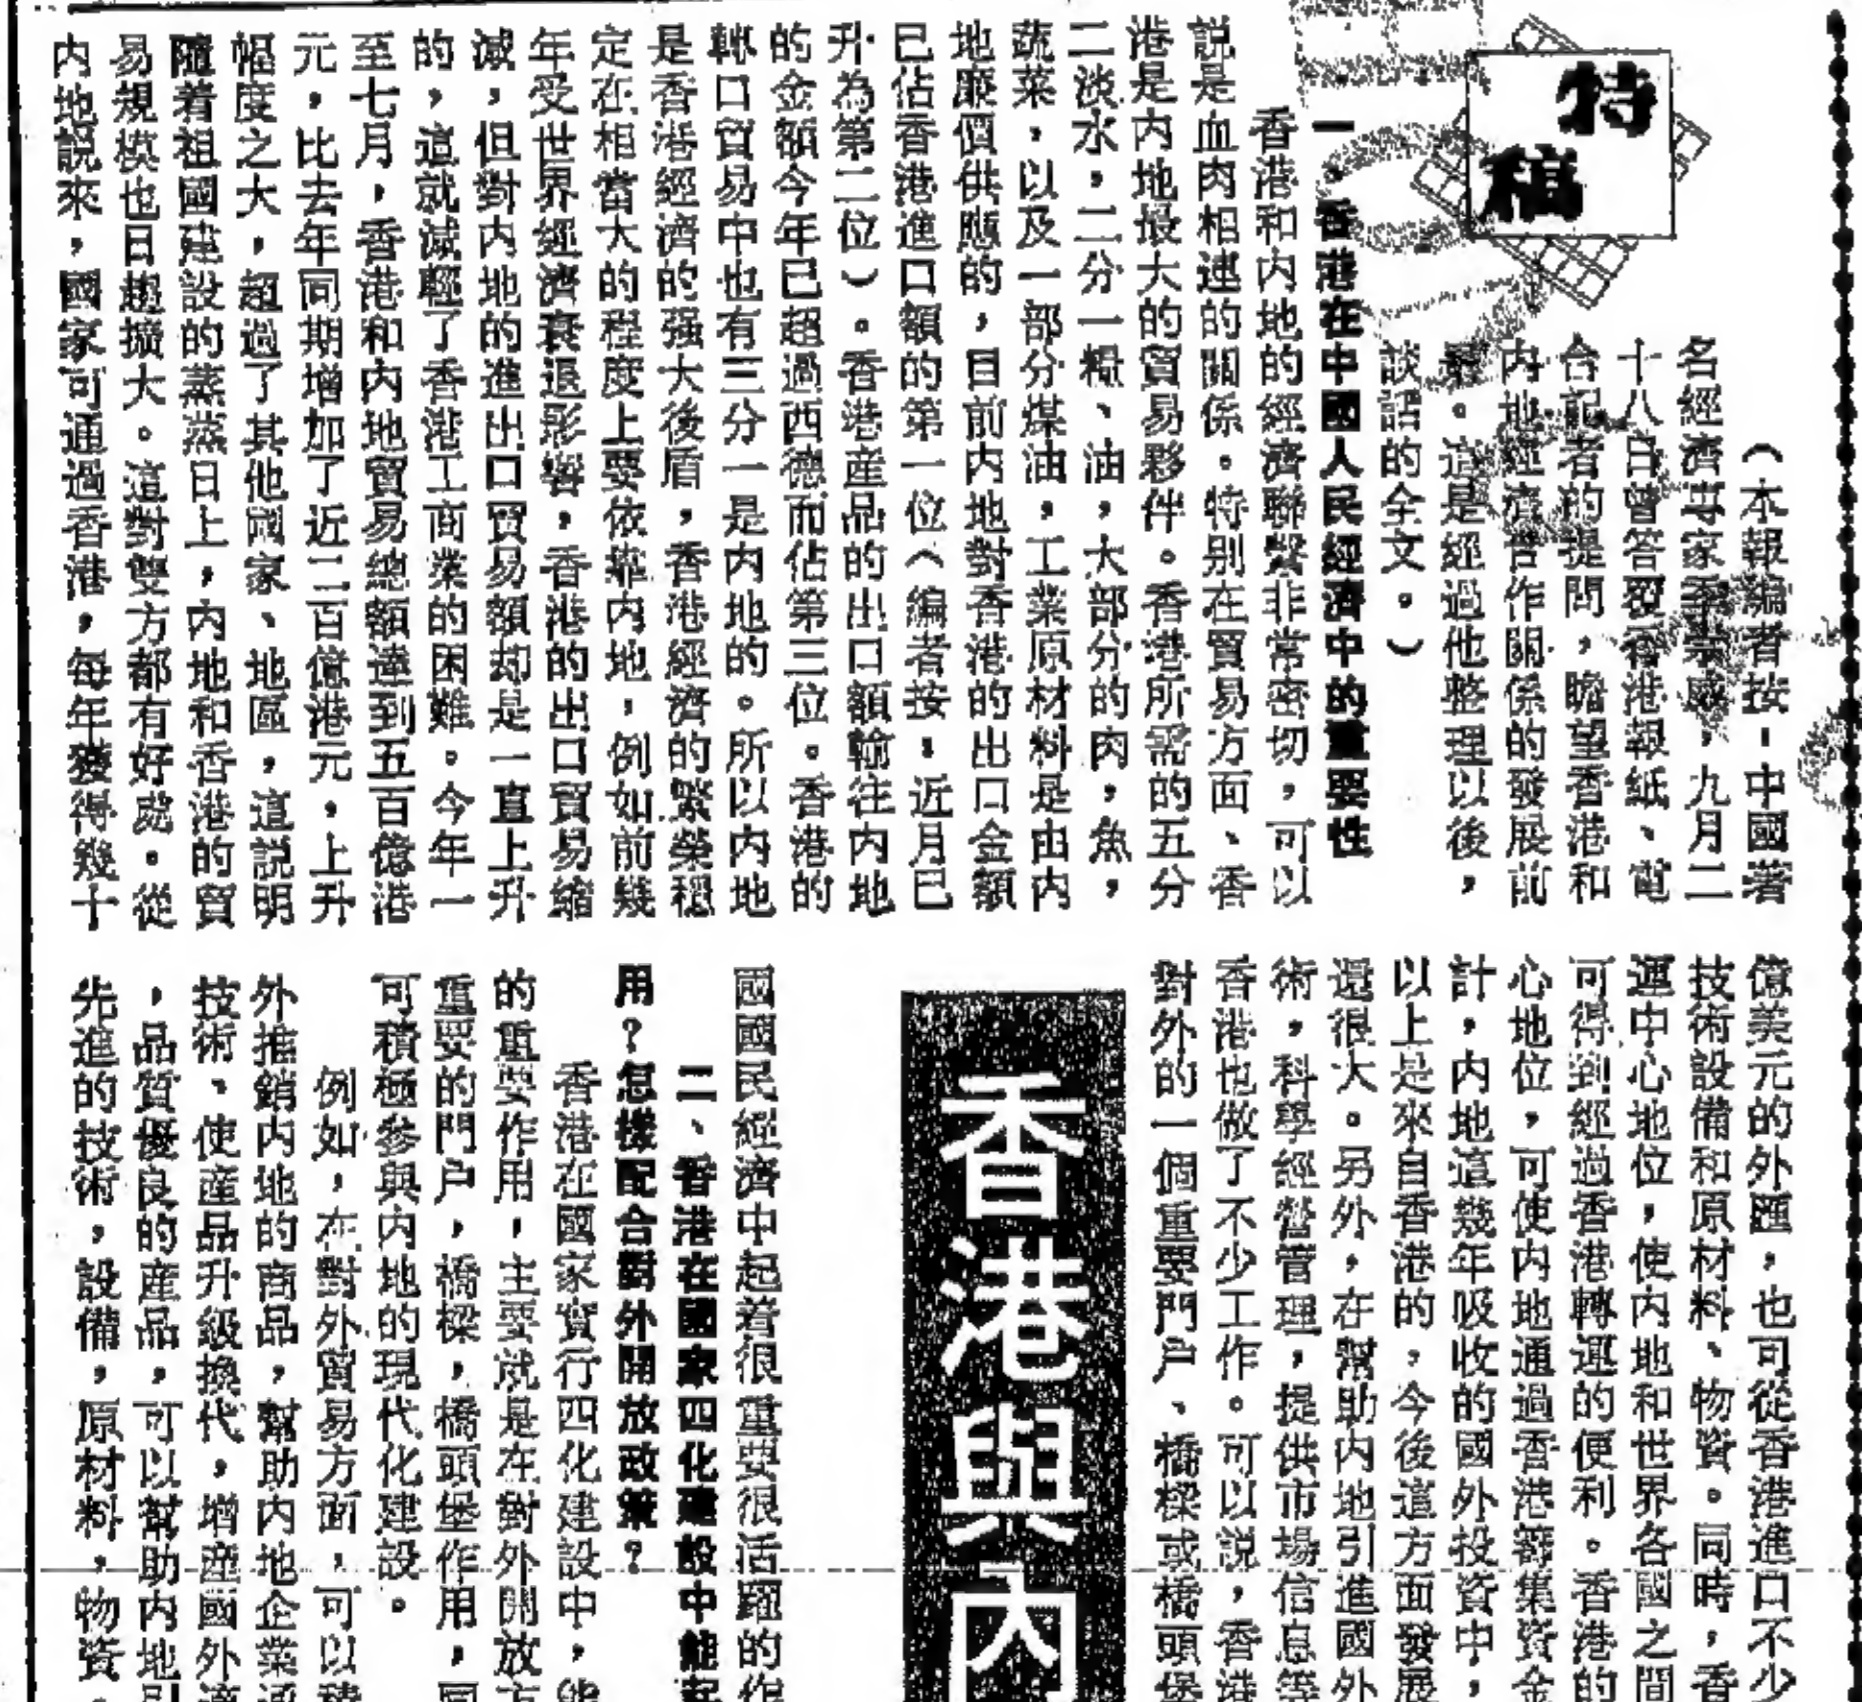 特稿
（本報編者按：中國著
名經濟專家季崇威，九月二
十八日曾答覆香港報紙、電
台記者的提問，瞻望香港和
内地經濟合作關係的發展前
景。這是經過他整理以後，
談話的全文。）
一、香港在中國人民經濟中的重要性
香港和内地的經濟聯繫非常密切，可以
説是血肉相連的關係。特别在貿易方面、香
港是内地最大的貿易夥伴。香港所需的五分
二淡水，二分一糧、油，大部分的肉，魚，
蔬菜，以及一部分煤油，工業原材料是由内
地廉價供應的，目前内地對香港的出口金額
已佔香港進口額的第一位（編者按：近月已
升為第二位）。香港産品的出口額輸往内地
的金額今年已超過西德而佔第三位。香港的
轉口貿易中也有三分一是内地的。所以内地
是香港經濟的强大後盾，香港經濟的繁榮穩
定在相當大的程度上要依靠内地，例如前幾
年受世界經濟衰退影響，香港的出口貿易縮
減，但對内地的進出口貿易額却是一直上升
的，這就減輕了香港工商業的困難。今年一
至七月，香港和内地貿易總額達到五百億港
元，比去年同期增加了近二百億港元，上升
幅度之大，超過了其他國家、地區，這説明
隨着祖國建設的蒸蒸日上，内地和香港的貿
易規模也日趨擴大。這對雙方都有好處。從
内地説來，國家可通過香港，每年獲得幾十
億美元的外匯，也可從香港進口不少
技術設備和原材料、物資。同時，香
運中心地位，使内地和世界各國之間
可得到經過香港轉運的便利。香港的
心地位，可使内地通過香港籌集資金
計，内地這幾年吸收的國外投資中，
以上是來自香港的，今後這方面發展
還很大。另外，在幫助内地引進國外
術，科學經營管理，提供市場信息等
香港也做了不少工作。可以説，香港
對外的一個重要門户、橋樑或橋頭堡
香港與内
國國民經濟中起着很重要很活躍的作
二、香港在國家四化建設中能起
用？怎樣配合對外開放政策？
香港在國家實行四化建設中，能
的重要作用，主要就是在對外開放方
重要的門户，橋樑，橋頭堡作用，同
可積極參與内地的現代化建設。
例如，在對外貿易方面，可以積
外推銷内地的商品，幫助内地企業適
技術、使産品升級換代，增産國外適
，品質優良的産品，可以幫助内地引
先進的技術，設備，原材料，物資，